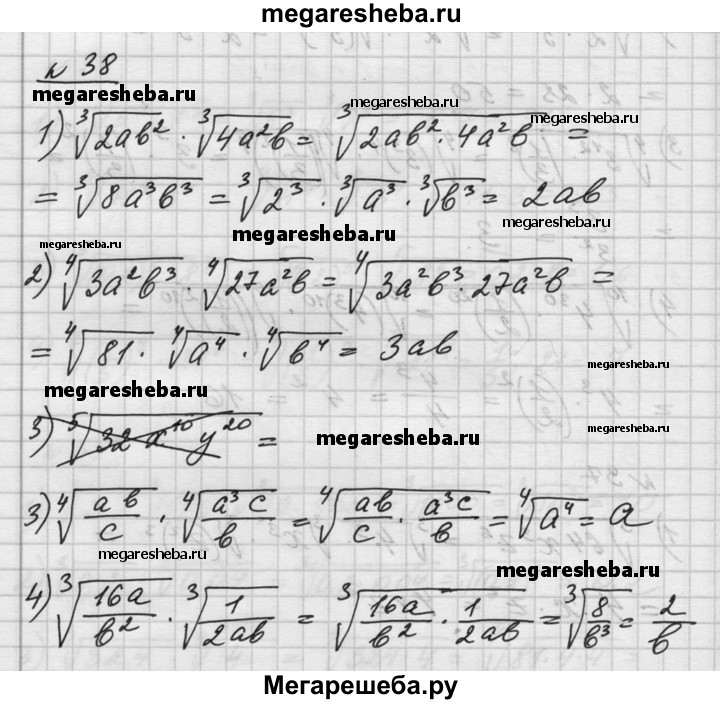 megaresheba.ru
№ 38
megaresheba.ru megaresheba.ru megaresheba.ru
1) ∛(2ab²) · ∛(4a²b) = ∛(2ab² · 4a²b) =
= ∛(8a³b³) = ∛(2³) · ∛(a³) · ∛(b³) = 2ab
megaresheba.ru megaresheba.ru megaresheba.ru
2) ∜(3a²b³) · ∜(27a²b) = ∜(3a²b³ · 27a²b) =
= ∜81 · ∜(a⁴) · ∜(b⁴) = 3ab
megaresheba.ru
megaresheba.ru
3) ⁵√(32x¹⁰y²⁰) =
megaresheba.ru megaresheba.ru
3) ∜(ab/c) · ∜(a³c/b) = ∜(ab/c · a³c/b) = ∜(a⁴) = a
megaresheba.ru megaresheba.ru
4) ∛(16a/b²) · ∛(1/2ab) = ∛(16a/b² · 1/2ab) = ∛(8/b³) = 2/b
Мегарешеба.ру